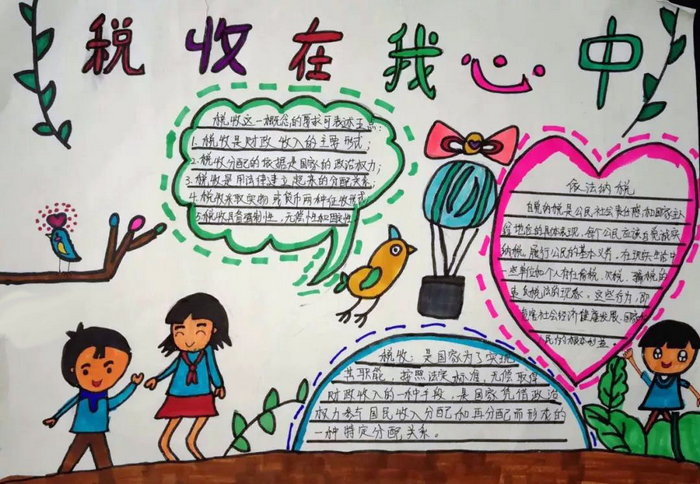 税收在我心中
税收这一概念的要求可表述五点:
1.税收是财政收入的主要形式;
2.税收分配的依据是国家的政治权力;
3.税收是用法律建立起来的分配关系;
4.税收采取实物或货币两种征收形式;
5.税收具有强制性,无偿性和固定性
依法纳税
自觉纳税是公民社会责任感和国家主
人翁地位的具体表现,每个公民应该自觉诚实
纳税,履行公民的基本义务,在现实生活中
一些单位和个人存在偷税、欠税、骗税的
违反税法的现象。这些行为,
社会经济健康发展、国家和
人民的根本利益。
税收:是国家为了实现
其职能,按照法定标准,无偿取得
财政收入的一种手段,是国家凭借政治
权力参与国民收入分配和再分配而形成的
一种特定分配关系。